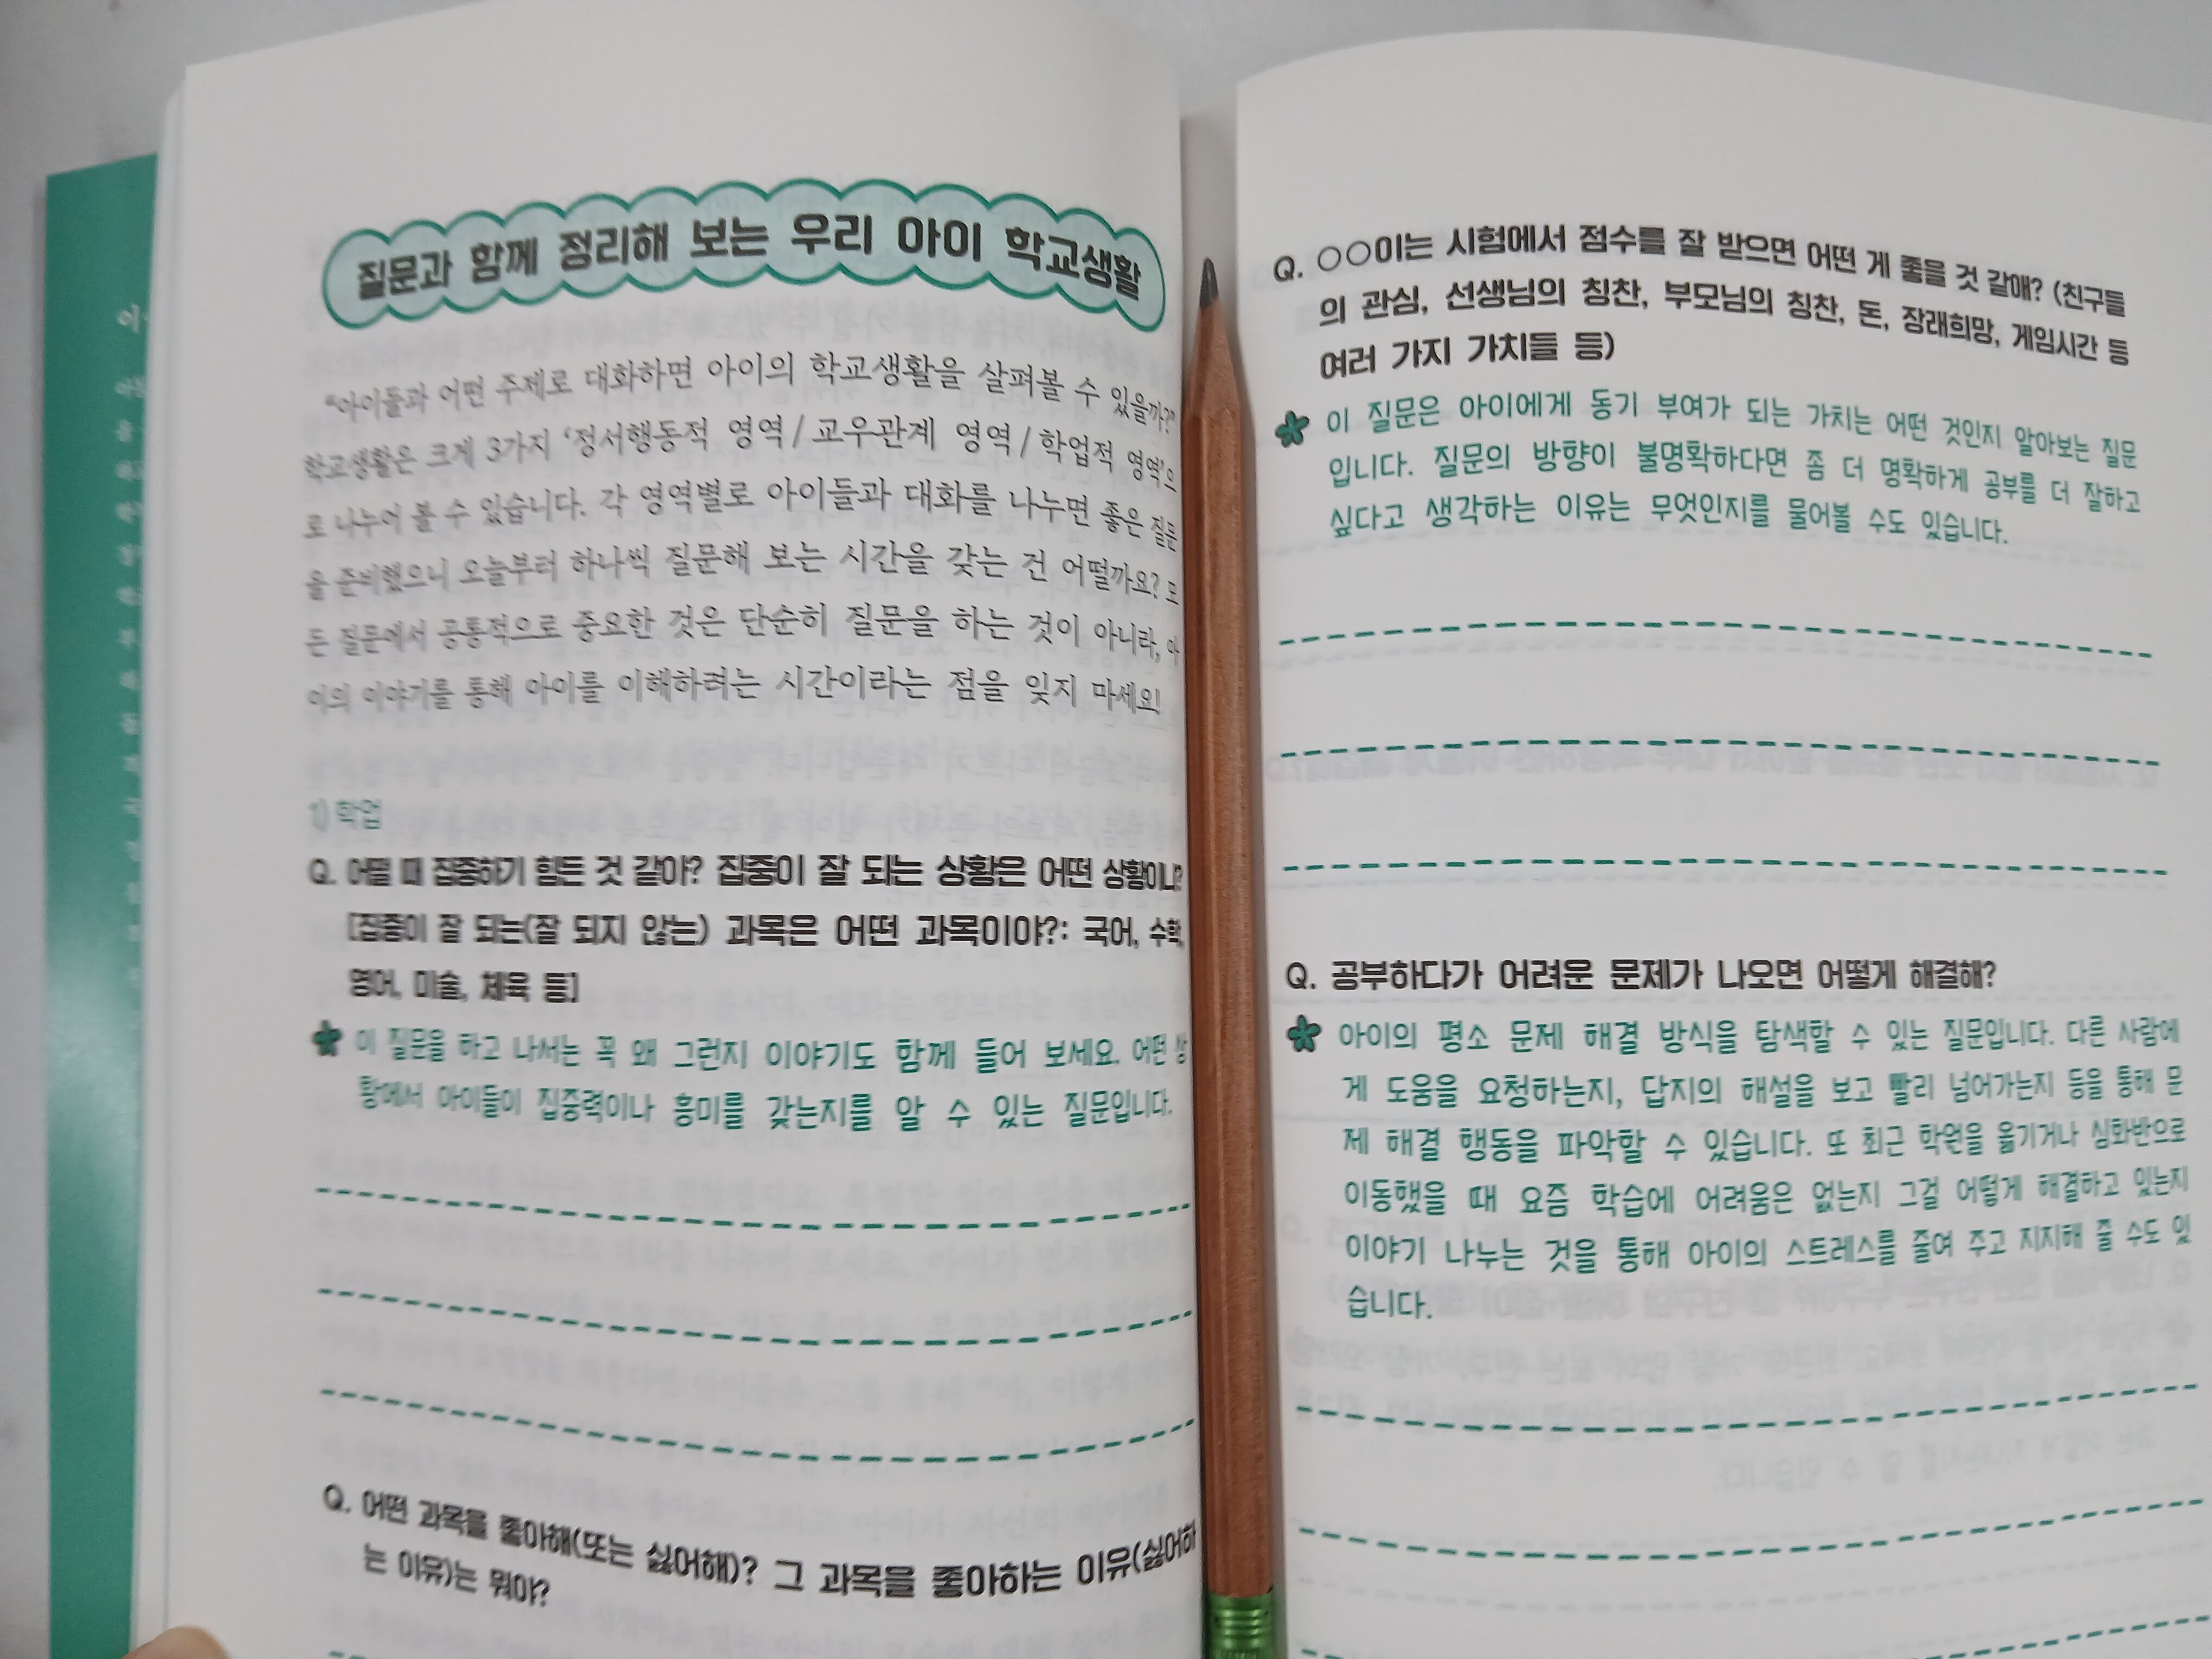 질문과 함께 정리해 보는 우리 아이 학교생활
“아이들과 어떤 주제로 대화하면 아이의 학교생활을 살펴볼 수 있을까?”
학교생활은 크게 3가지 ‘정서행동적 영역/교우관계 영역/학업적 영역’으
로 나누어 볼 수 있습니다. 각 영역별로 아이들과 대화를 나누면 좋은 질문
을 준비했으니 오늘부터 하나씩 질문해 보는 시간을 갖는 건 어떨까요? 모
든 질문에서 공통적으로 중요한 것은 단순히 질문을 하는 것이 아니라, 아
이의 이야기를 통해 아이를 이해하려는 시간이라는 점을 잊지 마세요!
1) 학업
Q. 어떨 때 집중하기 힘든 것 같아? 집중이 잘 되는 상황은 어떤 상황이니?
[집중이 잘 되는(잘 되지 않는) 과목은 어떤 과목이야?: 국어, 수학,
영어, 미술, 체육 등]
이 질문을 하고 나서는 꼭 왜 그런지 이야기도 함께 들어 보세요. 어떤 상
황에서 아이들이 집중력이나 흥미를 갖는지를 알 수 있는 질문입니다.
Q. 어떤 과목을 좋아해(또는 싫어해)? 그 과목을 좋아하는 이유(싫어하
는 이유)는 뭐야?
Q. ○○이는 시험에서 점수를 잘 받으면 어떤 게 좋을 것 같애? (친구들
의 관심, 선생님의 칭찬, 부모님의 칭찬, 돈, 장래희망, 게임시간 등
여러 가지 가치들 등)
이 질문은 아이에게 동기 부여가 되는 가치는 어떤 것인지 알아보는 질문
입니다. 질문의 방향이 불명확하다면 좀 더 명확하게 공부를 더 잘하고
싶다고 생각하는 이유는 무엇인지를 물어볼 수도 있습니다.
Q. 공부하다가 어려운 문제가 나오면 어떻게 해결해?
아이의 평소 문제 해결 방식을 탐색할 수 있는 질문입니다. 다른 사람에
게 도움을 요청하는지, 답지의 해설을 보고 빨리 넘어가는지 등을 통해 문
제 해결 행동을 파악할 수 있습니다. 또 최근 학원을 옮기거나 심화반으로
이동했을 때 요즘 학습에 어려움은 없는지 그걸 어떻게 해결하고 있는지
이야기 나누는 것을 통해 아이의 스트레스를 줄여 주고 지지해 줄 수도 있
습니다.